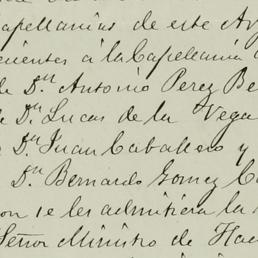 apellanias de este Ay
enientes á la Capellania
de Dn Antonio Perez Be
Dn Lucas de la Vega
Dn Juan Caballero y
Dn Bernardo Gomez C
on se les admitiera la
Señor Ministro de Hac